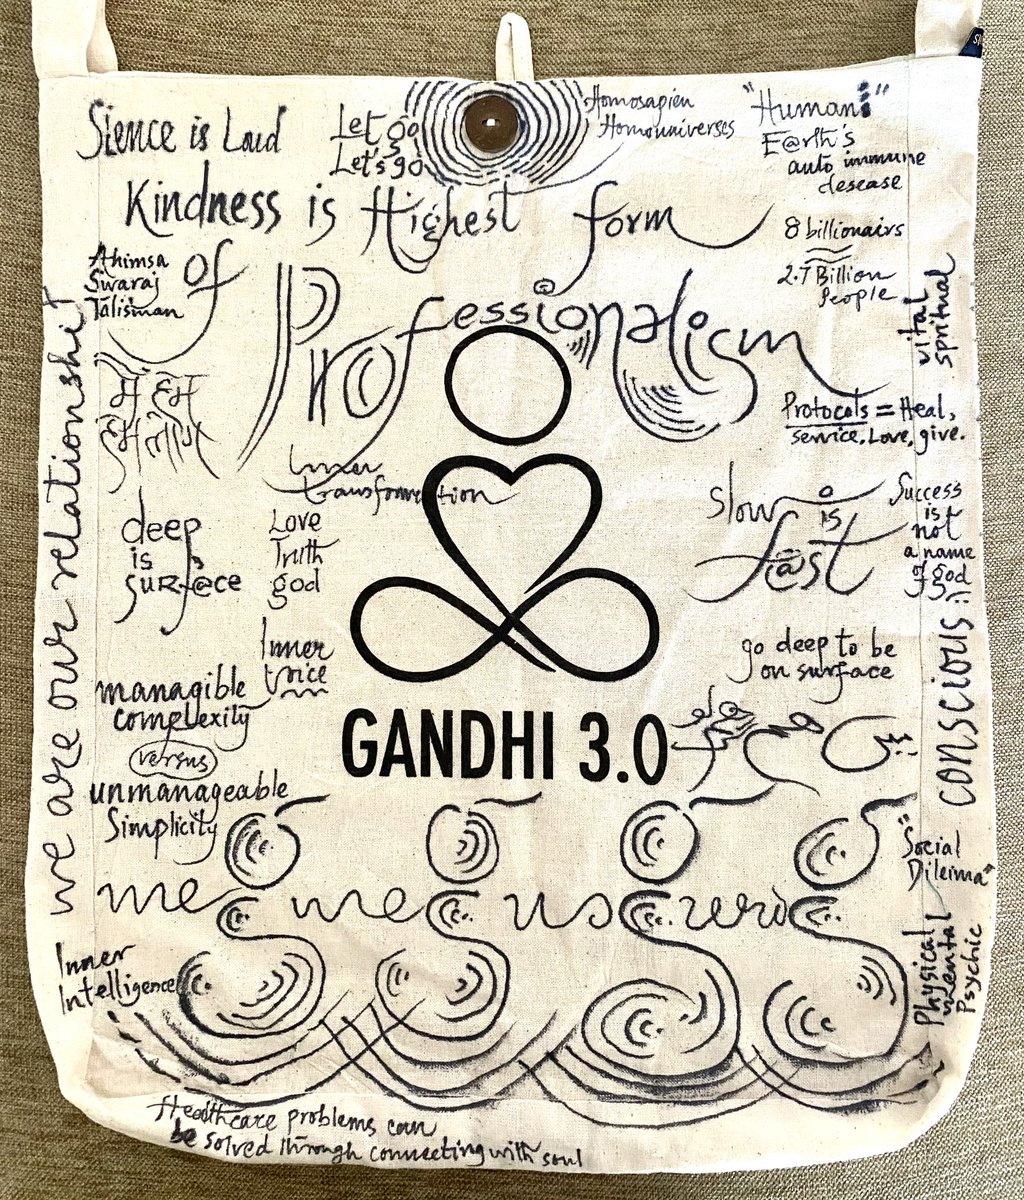 Sience is Loud
Let go
Let's go
Homosapien
Homouniverses
"Humani"
E@rth's
auto immune
desease
Kindness is Highest form
of
Professionalism
@
Ahimsa
Swaraj
Talisman
8 billionairs
2.7 Billion
People
vital
spritual
we are our relationship
मैं हम
हम लोग
Protocols = Heal,
service, Love, give.
Inner
transformation
deep
is
surf@ce
Love
Truth
god
slow
is
f@st
Success
is
not
a name
of god
Inner
voice
go deep to be
on surface
conscious
managible
complexity
versus
unmanageable
Simplicity
GANDHI 3.0
"Social
Dileima"
me we us zero
Inner
Intelligence
Physical
mental
Psychic
Healthcare problems can
be solved through connecting with soul